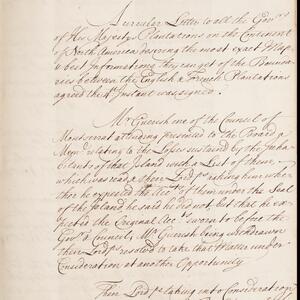 A circular Letter to all the Gov.rs
of Her Majestys Plantations on the Continent
of North America desiring the most exact Maps
& best Informations they can get of the Bounda-
ries between the English & French Plantations
agreed the 4th Instant was signed.
Mr Guerish one of the Council of
Montserrat attending presented to the Board a
Mem.l relating to the Losses sustained by the Inha-
bitants of that Island with a List of them,
which was read & their Lord.ps asking him whe-
ther he expected the Acc.ts of them under the Seal
of the Island, he said he did not, but that he ex-
pected the Original Acc.ts sworn to before the
Gov.r & Council; Mr Guerish being withdrawn
their Lord.ps resolved to take that Matter under
Consideration at another Opportunity
Their Lord.ps taking into Consideration